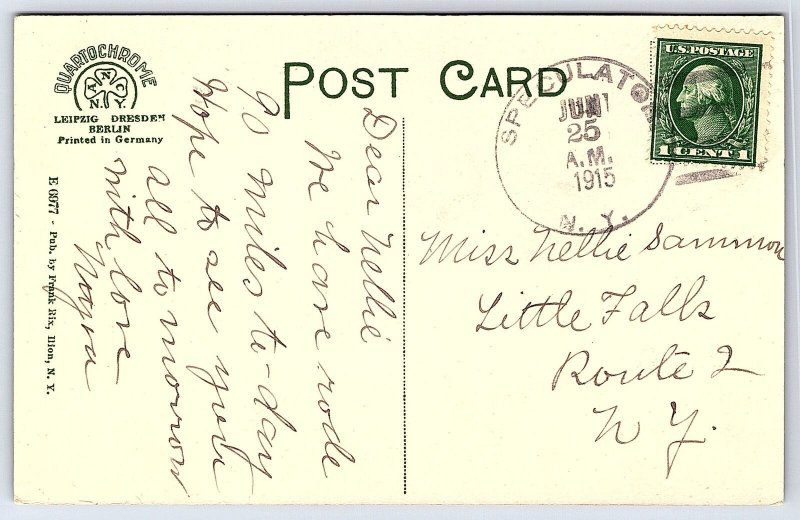 QUARTOCHROME
A N C
N. Y.
LEIPZIG DRESDEN
BERLIN
Printed in Germany
POST CARD
SPECULATOR
JUN
25
A.M.
1915
N. Y.
U.S. POSTAGE
1 CENT 1
E 6977 - Pub. by Frank Rix, Ilion, N. Y.
Dear Nellie
We have rode
70 miles to-day
Hope to see you
all to morrow
with love
Miss Nellie Sammon
Little Falls
Route 2
N Y.